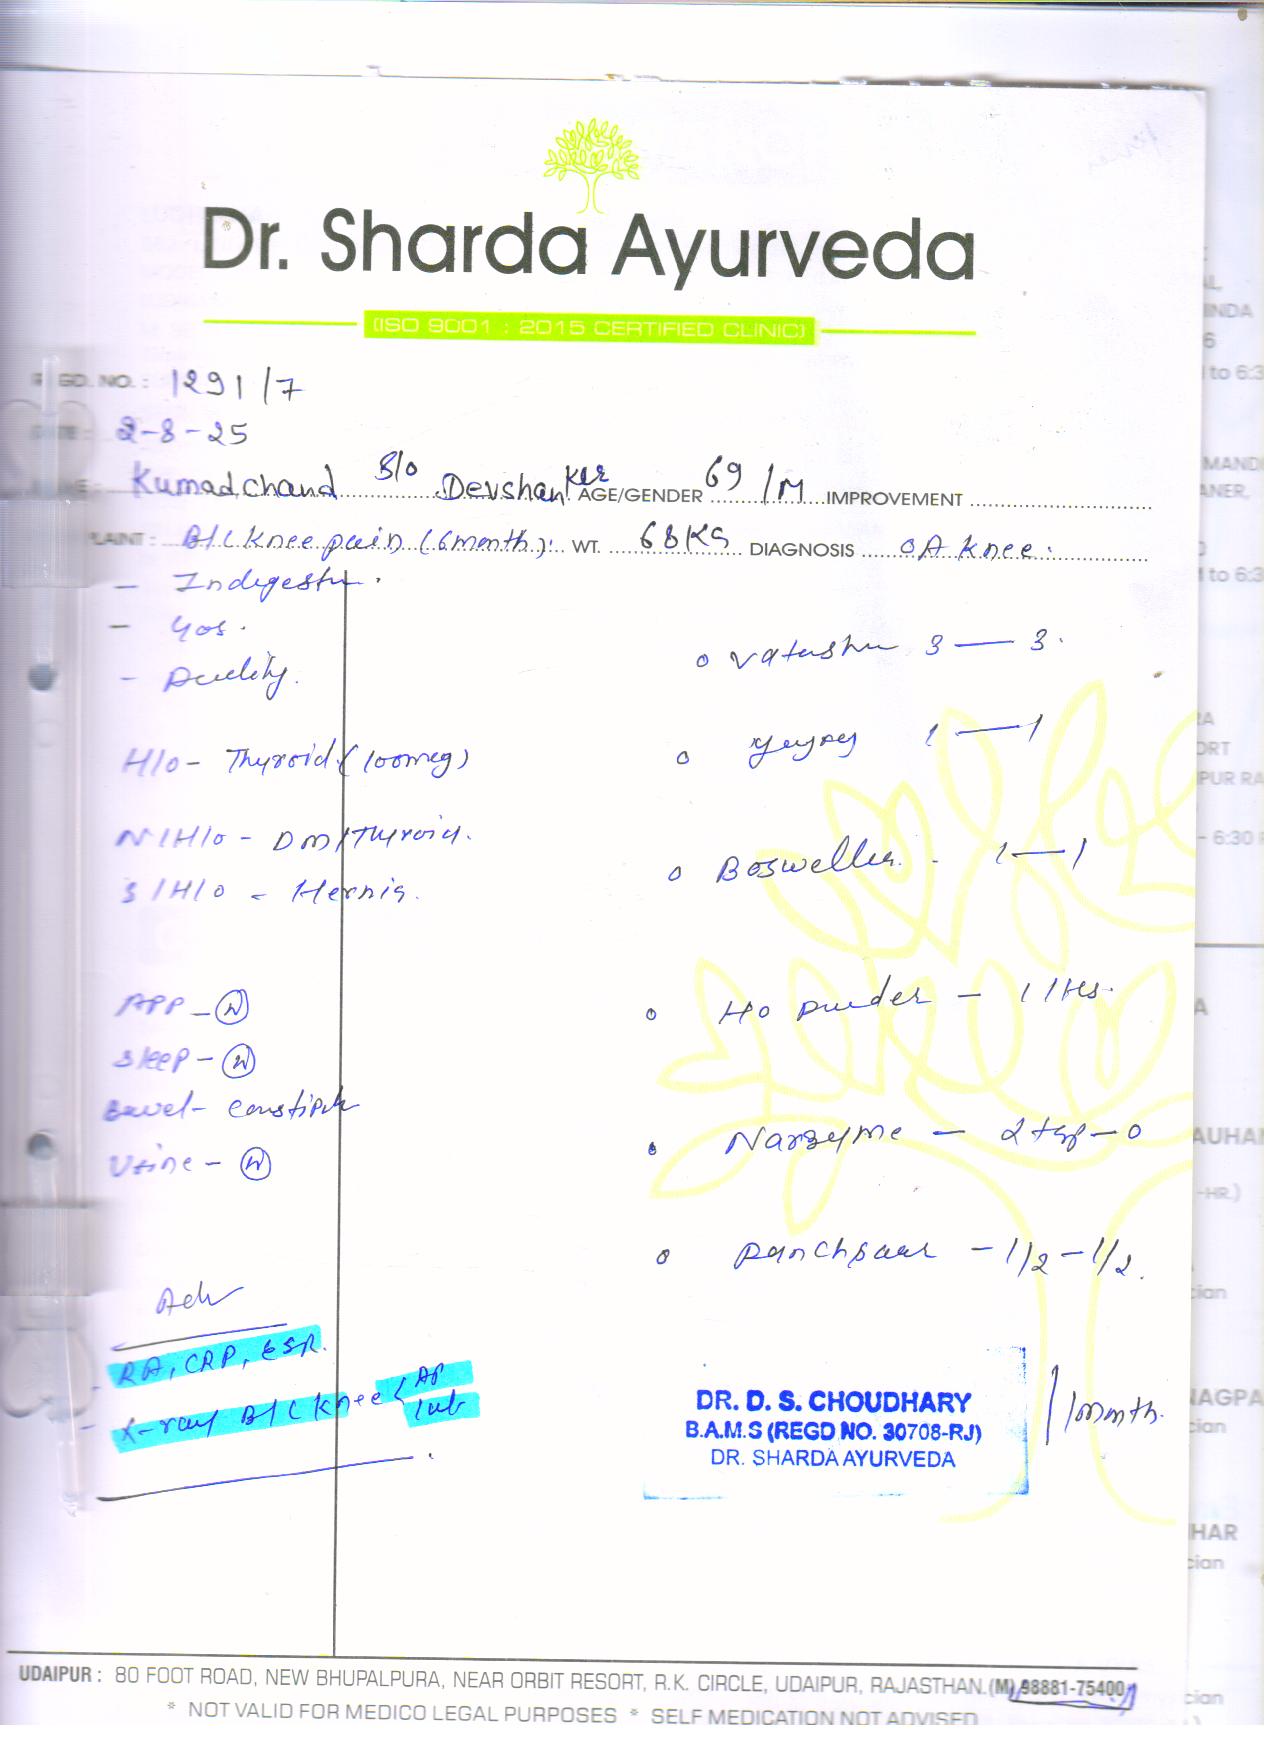 Dr. Sharda Ayurveda
(ISO 9001 : 2015 CERTIFIED CLINIC)
GD. NO. : 1291/7
2-8-25
Kumadchand S/o Devshanker AGE/GENDER 69/M IMPROVEMENT
PLAINT : B/L Knee pain (6 month). WT. 68KG DIAGNOSIS OA Knee.
- Indigestn.
- Gas.
- Acidity.
H/o - Thyroid (100mcg)
N/H/o - DM/Thyroid.
S/H/o - Hernia.
APP - N
Sleep - N
Bowel - Constipt
Urine - N
Adv
- RA, CRP, ESR.
- X-ray B/L Knee < AP
Lat
Vatashu 3 — 3.
1 — 1
Boswellia. 1 — 1
Ho powder - 1
Narzyme - 2 tsp - 0
Panchsaar - 1/2 - 1/2.
DR. D. S. CHOUDHARY
B.A.M.S (REGD NO. 30708-RJ)
DR. SHARDA AYURVEDA
1 month.
UDAIPUR : 80 FOOT ROAD, NEW BHUPALPURA, NEAR ORBIT RESORT, R.K. CIRCLE, UDAIPUR, RAJASTHAN. (M) 98881-75400
* NOT VALID FOR MEDICO LEGAL PURPOSES * SELF MEDICATION NOT ADVISED